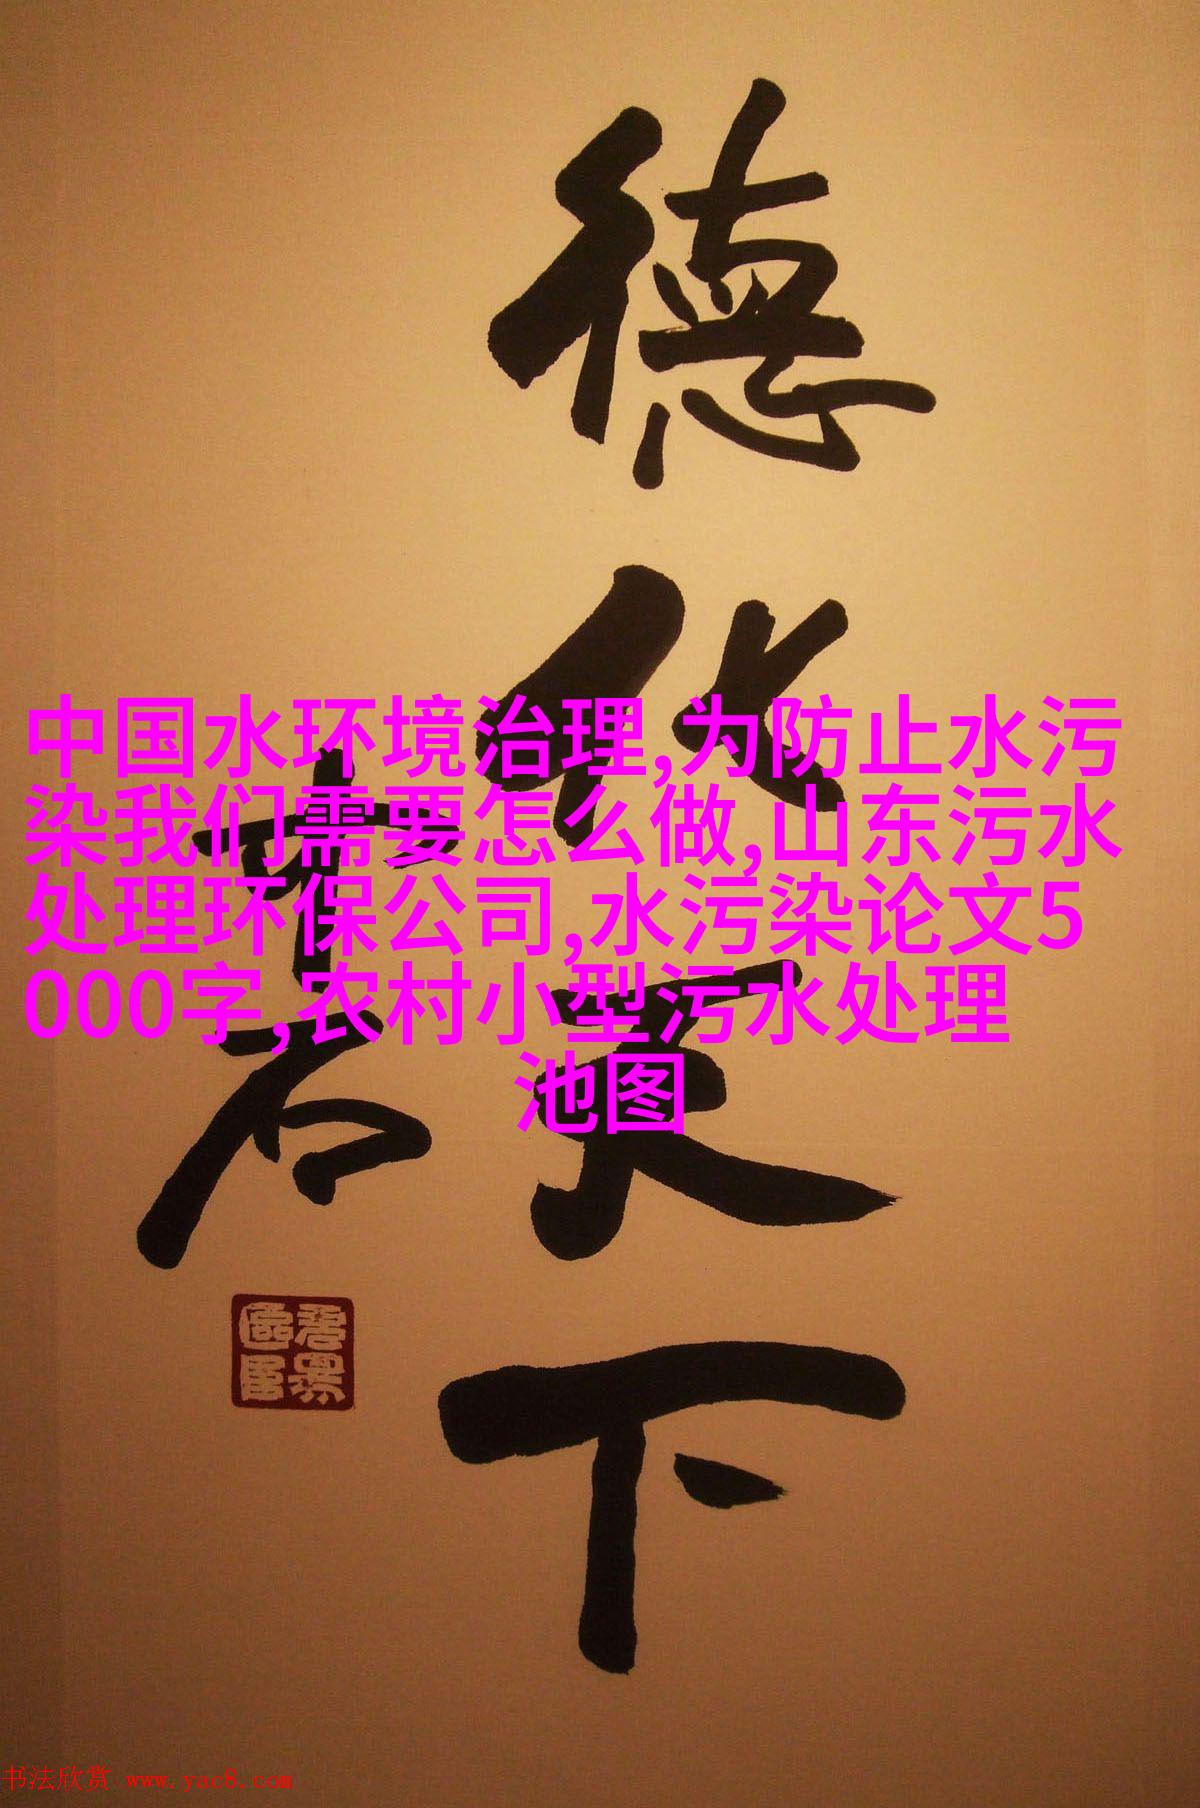 德化天下
中国水环境治理,为防止水污
染我们需要怎么做,山东污水
处理环保公司,水污染论文5
000字,农村小型污水处理
池图
书法欣赏 www.yac8.com